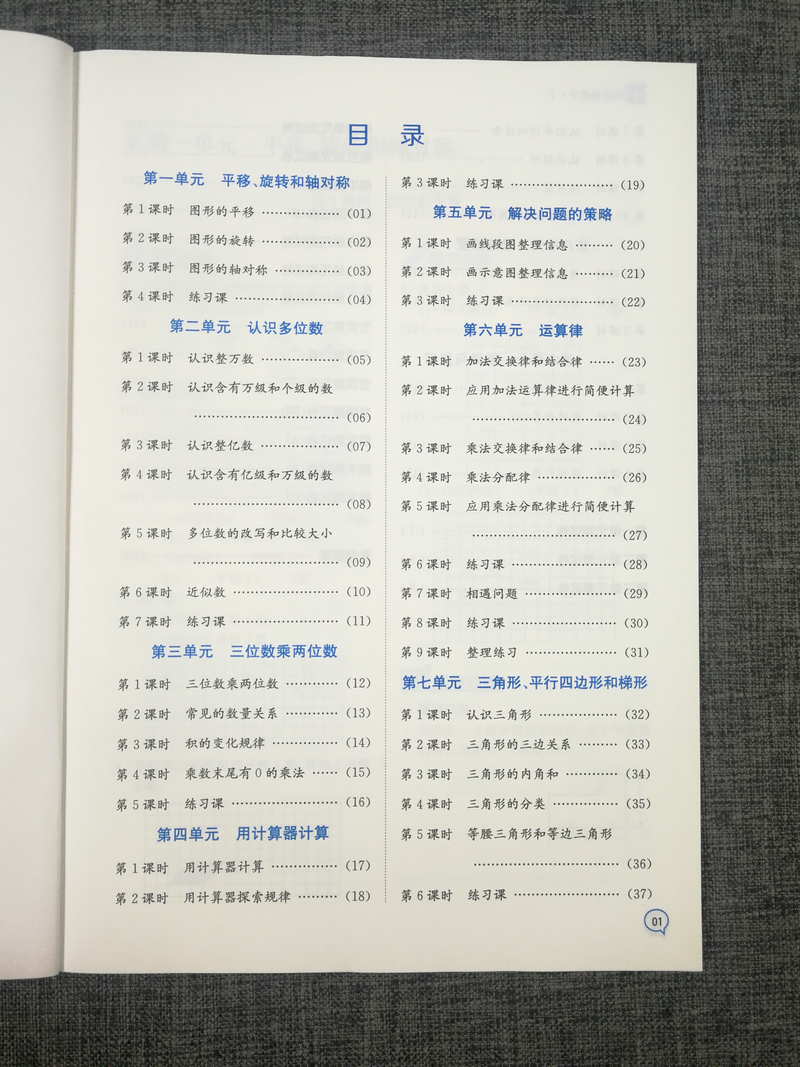 目 录
第一单元 平移、旋转和轴对称
第1课时 图形的平移 ……………(01)
第2课时 图形的旋转 ……………(02)
第3课时 图形的轴对称 …………(03)
第4课时 练习课 …………………(04)
第二单元 认识多位数
第1课时 认识整万数 ……………(05)
第2课时 认识含有万级和个级的数
…………………………(06)
第3课时 认识整亿数 ……………(07)
第4课时 认识含有亿级和万级的数
…………………………(08)
第5课时 多位数的改写和比较大小
…………………………(09)
第6课时 近似数 …………………(10)
第7课时 练习课 …………………(11)
第三单元 三位数乘两位数
第1课时 三位数乘两位数 ………(12)
第2课时 常见的数量关系 ………(13)
第3课时 积的变化规律 …………(14)
第4课时 乘数末尾有0的乘法 ……(15)
第5课时 练习课 …………………(16)
第四单元 用计算器计算
第1课时 用计算器计算 …………(17)
第2课时 用计算器探索规律 ………(18)
第3课时 练习课 …………………(19)
第五单元 解决问题的策略
第1课时 画线段图整理信息 ………(20)
第2课时 画示意图整理信息 ………(21)
第3课时 练习课 …………………(22)
第六单元 运算律
第1课时 加法交换律和结合律 ……(23)
第2课时 应用加法运算律进行简便计算
…………………………(24)
第3课时 乘法交换律和结合律 ……(25)
第4课时 乘法分配律 ……………(26)
第5课时 应用乘法分配律进行简便计算
…………………………(27)
第6课时 练习课 …………………(28)
第7课时 相遇问题 ………………(29)
第8课时 练习课 …………………(30)
第9课时 整理练习 ………………(31)
第七单元 三角形、平行四边形和梯形
第1课时 认识三角形 ……………(32)
第2课时 三角形的三边关系 ………(33)
第3课时 三角形的内角和 …………(34)
第4课时 三角形的分类 ……………(35)
第5课时 等腰三角形和等边三角形
…………………………(36)
第6课时 练习课 …………………(37)
01